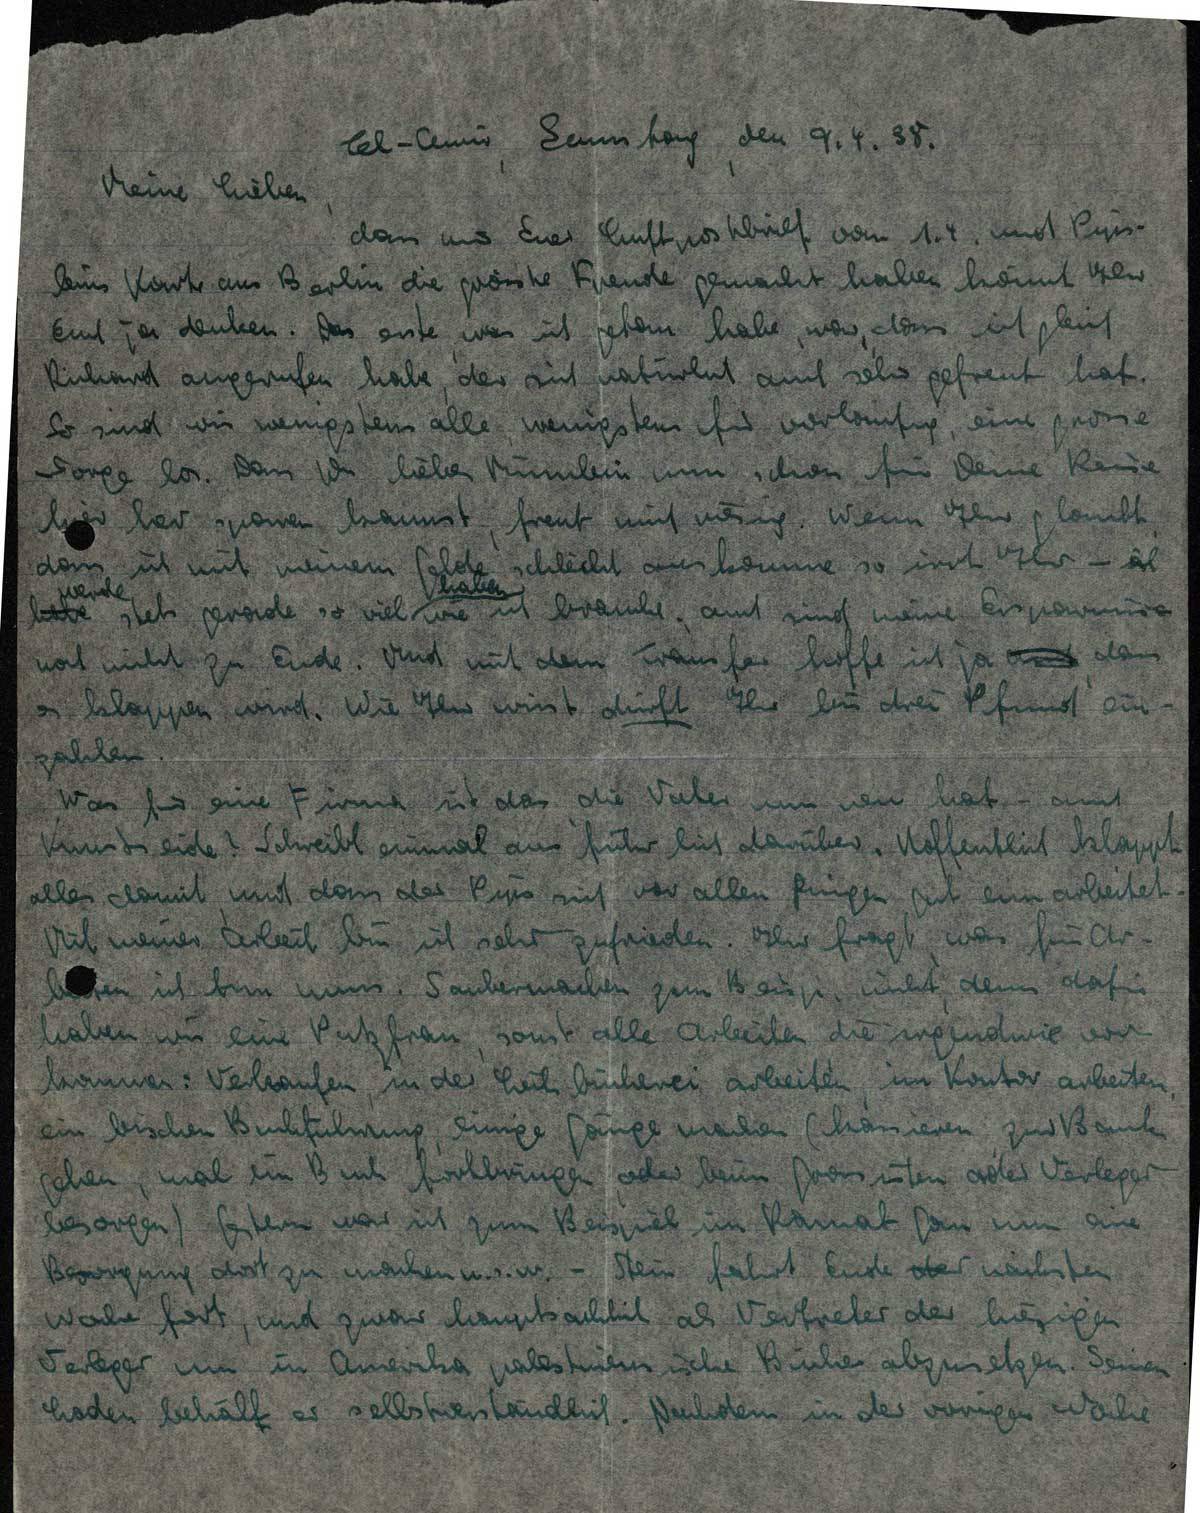 Tel-Amir, Samstag, den 9.4.38.
Meine Lieben,
dass mir Euer Luftpostbrief vom 1.4. und Pyis-
leins Karte aus Berlin die grösste Freude gemacht haben könnt Ihr
Euch ja denken. Das erste, was ich getan habe, war, dass ich gleich
Richard angerufen habe, der sich natürlich auch sehr gefreut hat.
So sind wir wenigstens alle, wenigstens für vorläufig, eine grosse
Sorge los. Dass Du liebes nun schon für Deine Reise
hier her sparen kannst, freut mich riesig. Wenn Ihr glaubt,
dass ich mit meinem Gelde schlecht auskomme so irrt Ihr - ich
werde stets gerade so viel haben wie ich brauche, auch sind meine Ersparnisse
noch nicht zu Ende. Und mit dem Transfer hoffe ich ja, dass
es klappen wird. Wie Ihr wisst dürft Ihr bis drei Pfund ein-
zahlen.
Was für eine Firma ist das, die Vater nun neu hat - auch
Kunstseide? Schreibt einmal ausführlich darüber. Hoffentlich klappt
alles damit und dass der Pyis sich vor allen Dingen gut einarbeitet.
Mit meiner Arbeit bin ich sehr zufrieden. Ihr fragt, was für Ar-
beiten ich tun muss. Saubermachen zum Beisp. nicht, denn dafür
haben wir eine Putzfrau, sonst alle Arbeiten die irgendwie vor-
kommen: Verkaufen, in der Leihbücherei arbeiten, im Kontor arbeiten,
ein bischen Buchführung, einige Gänge machen (kassieren, zur Bank
gehen, mal ein Buch fortbringen oder beim Grossisten oder Verleger
besorgen) Gestern war ich zum Beispiel in Ramat Gan um eine
Besorgung dort zu machen u.s.w. - Stein fährt Ende nächster
Woche fort, und zwar hauptsächlich als Vertreter der hiesigen
Verleger um in Amerika palästinensische Bücher abzusetzen. Seinen
Laden behält er selbstverständlich. Nachdem in der vorigen Woche